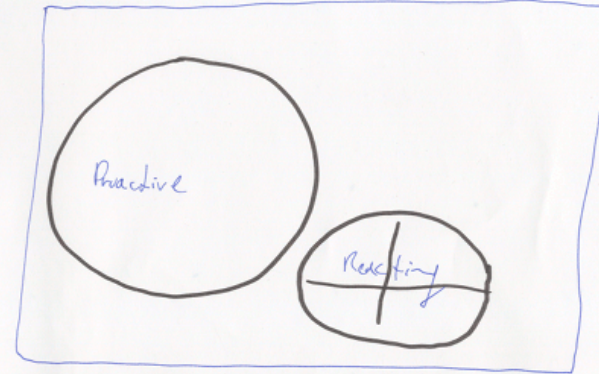 Proactive
Reacting